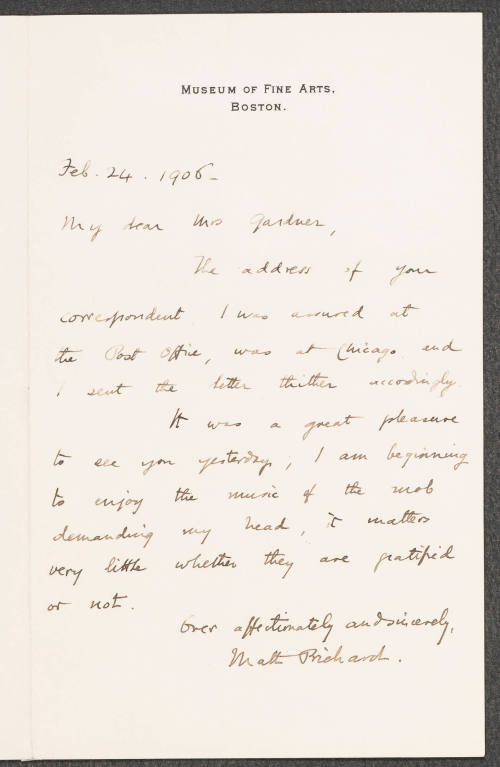 MUSEUM OF FINE ARTS,
BOSTON.
Feb. 24. 1906-
My dear Mrs Gardner,
The address of your
correspondent, I was assured at
the Post Office, was at Chicago and
I sent the letter thither accordingly.
It was a great pleasure
to see you yesterday; I am beginning
to enjoy the music of the mob
demanding my head, it matters
very little whether they are gratified
or not.
Ever affectionately and sincerely,
Matt Prichard.